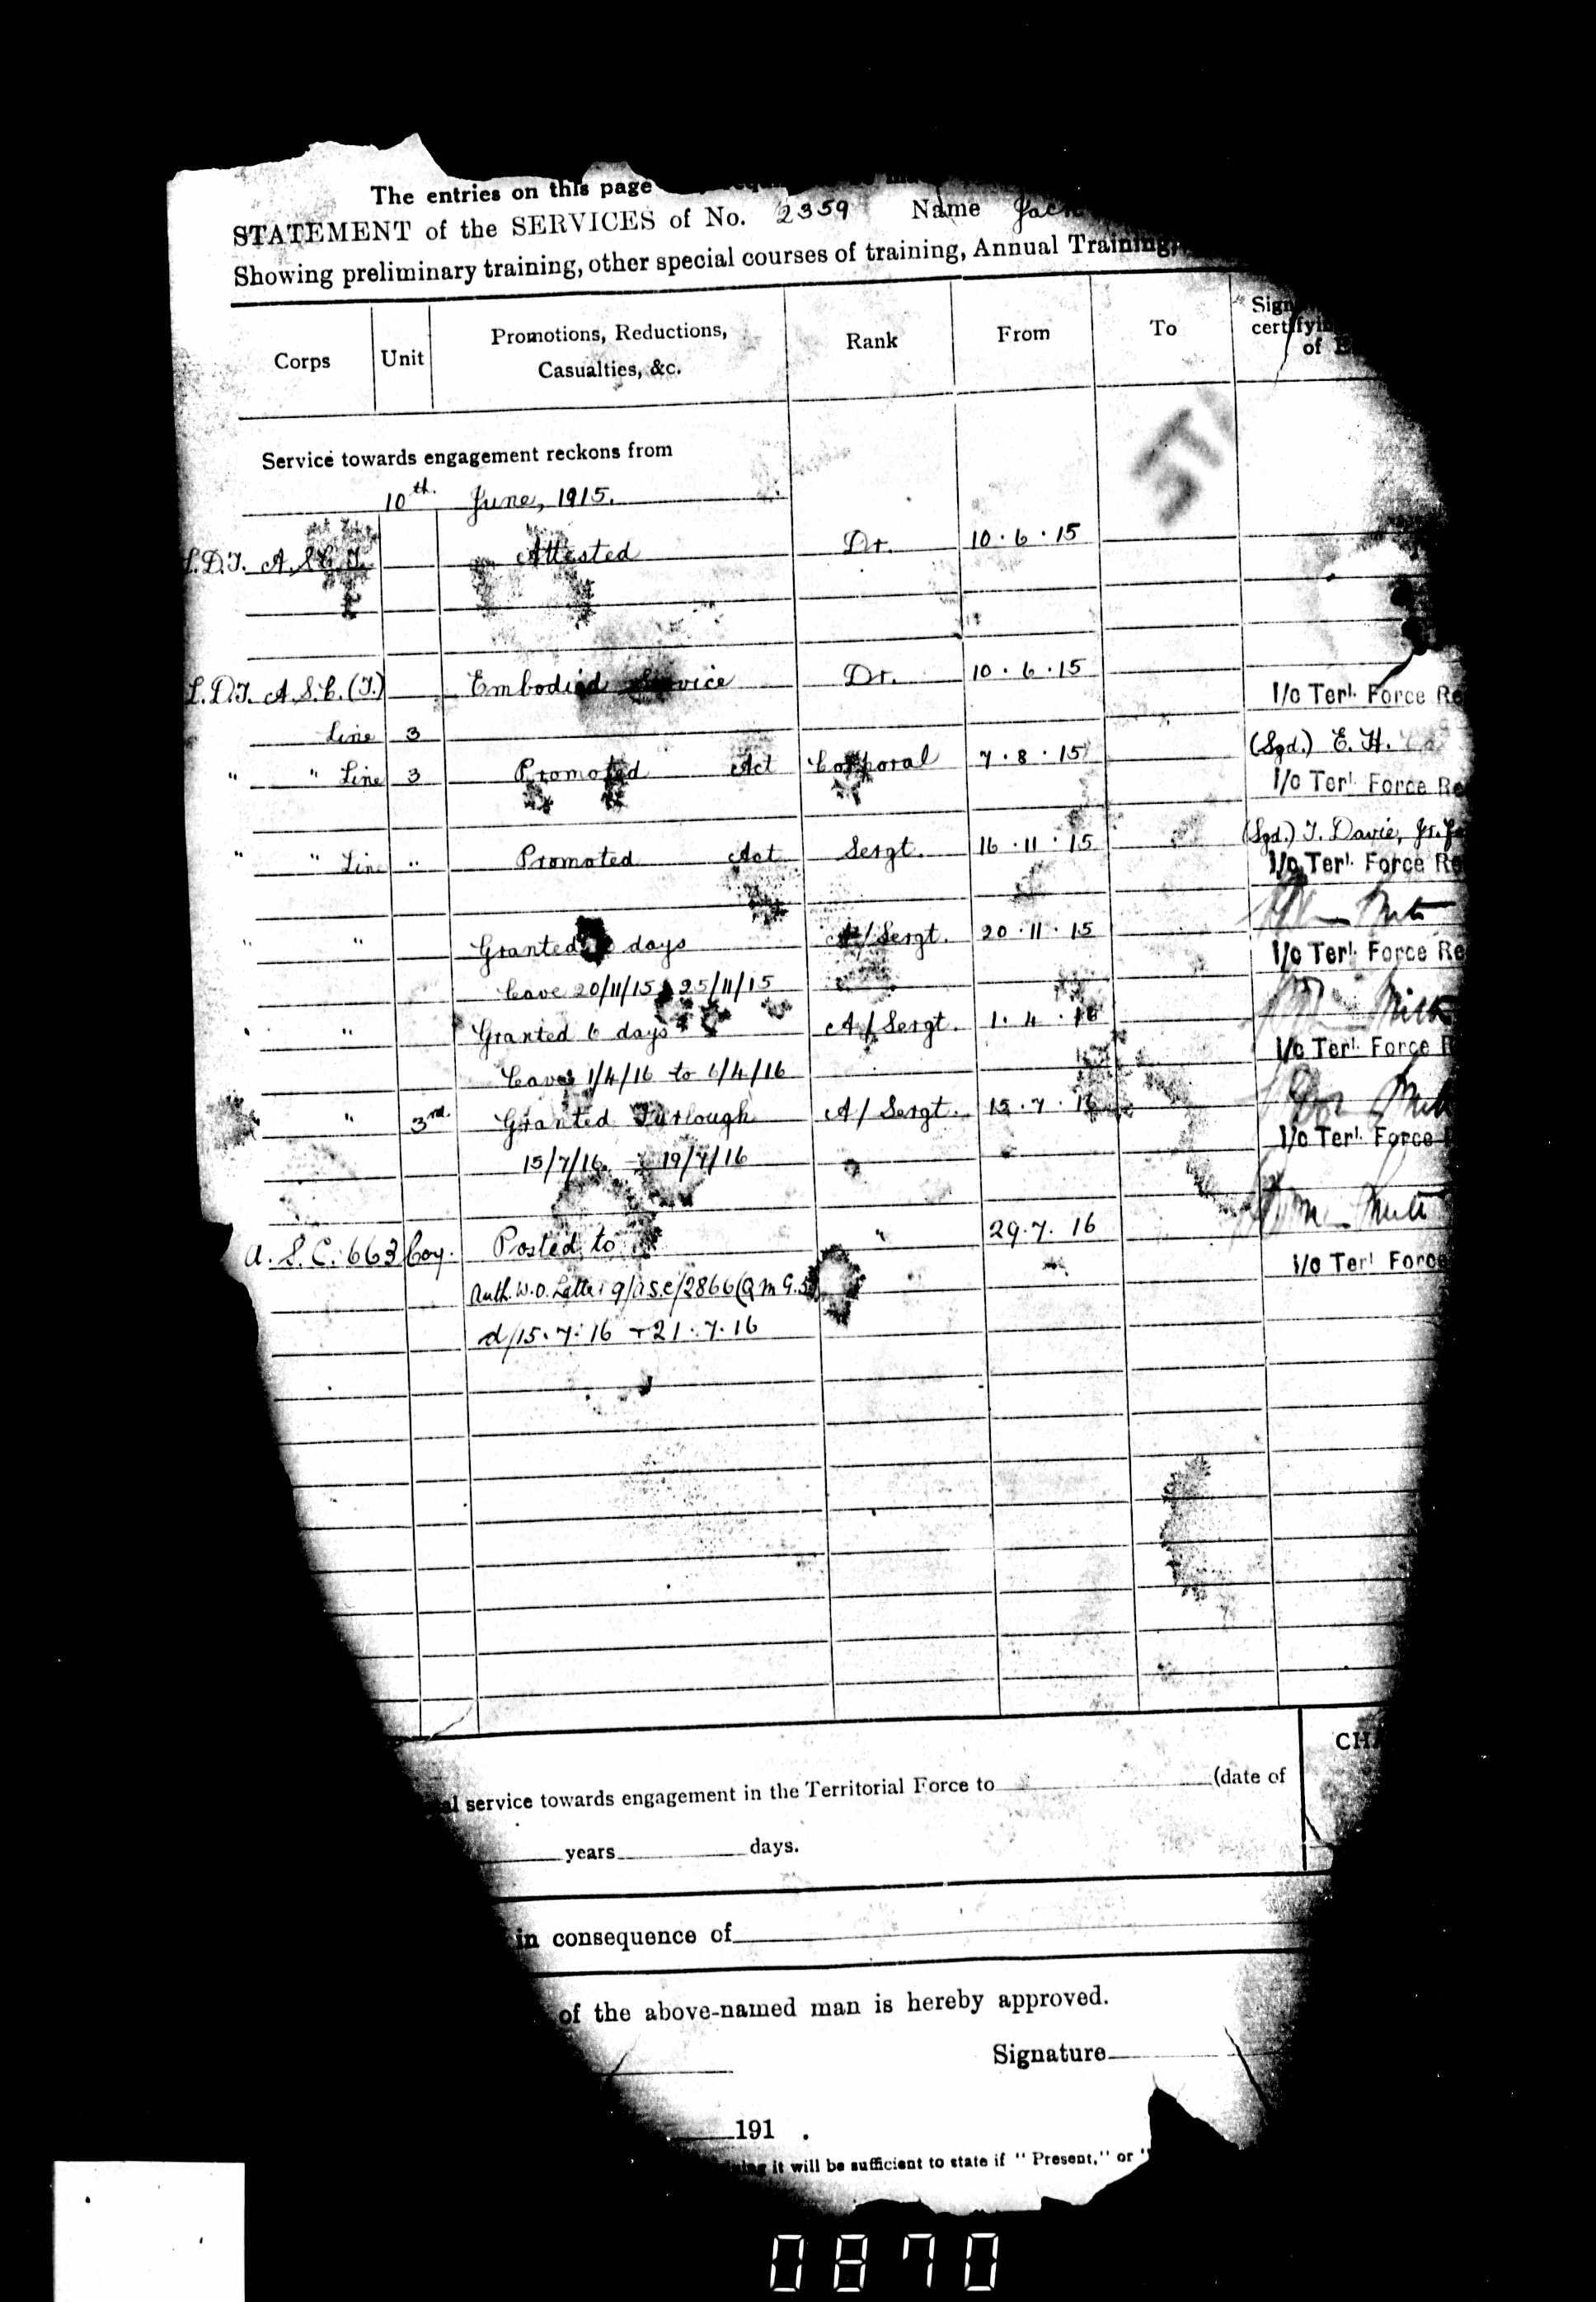 The entries on this page
STATEMENT of the SERVICES of No. 2359 Name
Showing preliminary training, other special courses of training, Annual Training,
Corps Unit Promotions, Reductions, Casualties, &c. Rank From To
Service towards engagement reckons from
10th June, 1915.
A.S.C. Attested Dr. 10.6.15
A.S.C. (T.) Embodied Service Dr. 10.6.15
I/c Terl. Force
Line 3
(Sgd.) E. H.
" " Line 3 Promoted Act Corporal 7.8.15
I/c Terl. Force
(Sgd.) T. Davie,
" " Line " Promoted Act Sergt. 16.11.15
I/c Terl. Force
" Granted days A/Sergt. 20.11.15
I/c Terl. Force
Leave 20/11/15 25/11/15
" " Granted 6 days A/Sergt. 1.4.16
I/c Terl. Force
Leave 1/4/16 to 6/4/16
" 3rd. Granted Furlough A/Sergt. 15.7.16
I/c Terl. Force
15/7/16 19/7/16
A.S.C. 663 Coy. Posted to " 29.7.16
I/c Terl Force
Auth. W.O. Letter 9/ASC/2866 (QMG.
d/15.7.16 + 21.7.16
service towards engagement in the Territorial Force to (date of
years days.
in consequence of
of the above-named man is hereby approved.
Signature
191 .
it will be sufficient to state if "Present," or "
0870